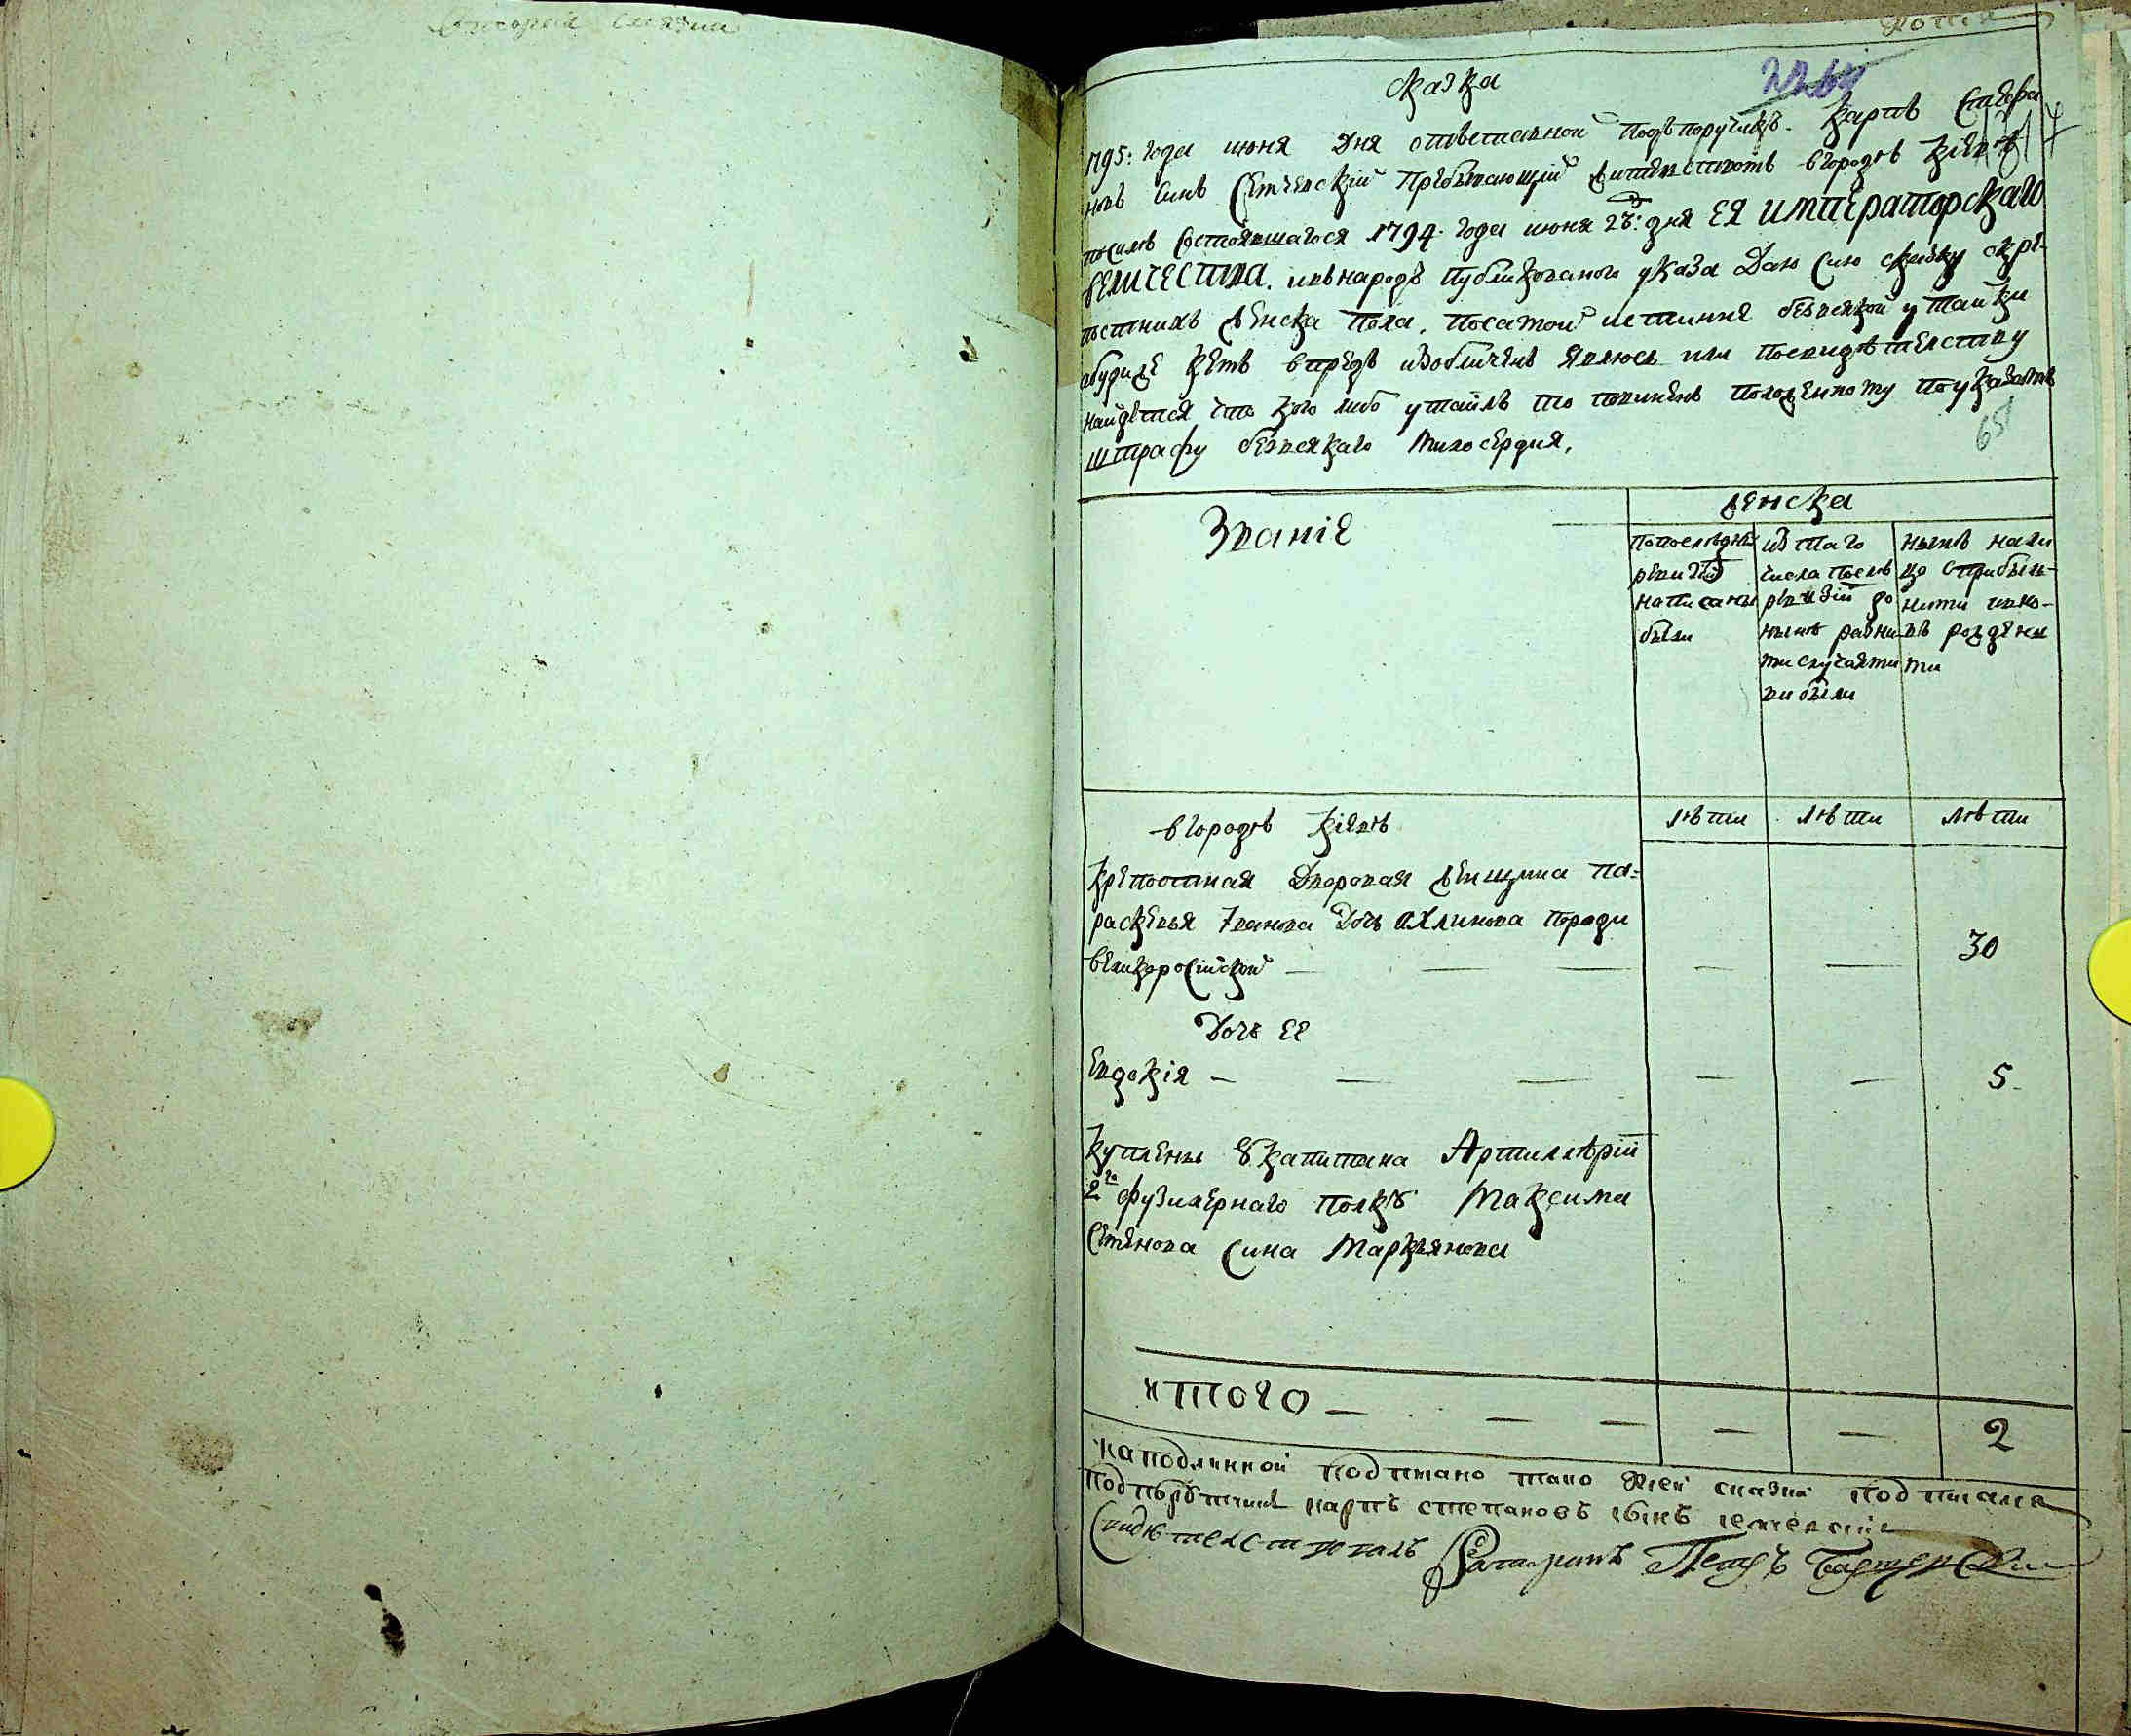 копия
сказка
1795: года июня дня отвставной подъпоручикъ Карпъ Степа
новъ синъ Семчевскiй пребывающiй
посилѣ состоявшагося 1794. года июня 23: дня ЕЯ ИМПЕРАТОРСКАГО
ВЕЛИЧЕСТВА. ивънародъ публикованого указа даю сию скаску окрѣ
постнихъ женска пола, посамой истинне безвсякой утайки
абудиже кемъ впредь изобличенъ явлюсь или посвидѣтелству
найдется что кого либо утаилъ то повиненъ положенному поуказамъ
штрафу безвсякаго милосердия,
65
Званiе
женска
попоследней ревизiй написаны были
изтаго числа послѣ ревизiй до нынѣ разними случаями вибыли
нынѣ нали цо сприбылими ивно-вѣ рожденими
вгородѣ Кiевѣ
лѣти лѣти лѣти
крепостная дворовая женщина па=
раскевья Iванова дочь ахлинова породи
великоросiйской — — — — — 30
дочь ее
Евдокiя — — — — — 5
куплены Укапитана Артиллѣрiй
2го фузилернаго полку Максима
Семенова сина Маркянова
итого — — — — — 2
наподлинной подписано тако ксей сказки подписался
подпоручикъ карпъ степановъ сынъ семчевский
Свидѣтелствовалъ Петръ